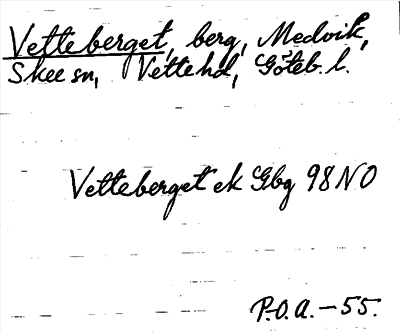 Vetteberget, berg, Medvik,
Skee sn, Vette hd, Göteb. l.
Vetteberget ek Gbg 98 NO
P.O.A. - 55.